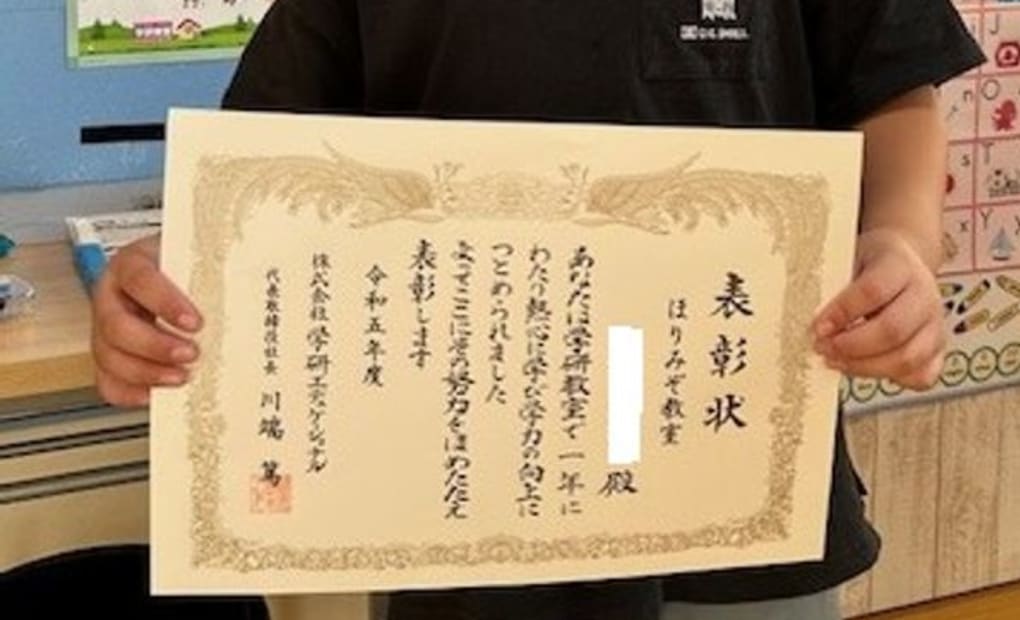 表彰状
ほりみぞ教室
殿
あなたは学研教室で一年に
わたり熱心に学び学力の向上に
つとめられました
よってここにその努力をほめたたえ
表彰します
令和五年度
株式会社 学研エデュケーショナル
代表取締役社長 川端 篤